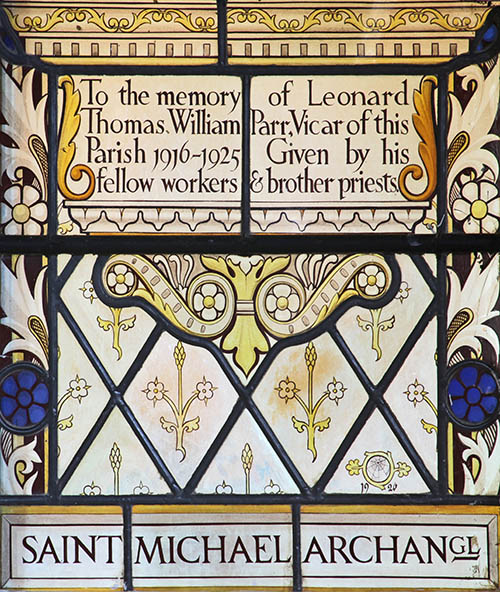 To the memory of Leonard
Thomas William Parr, Vicar of this
Parish 1916-1925 Given by his
fellow workers & brother priests.
1926
SAINT MICHAEL ARCHANGL